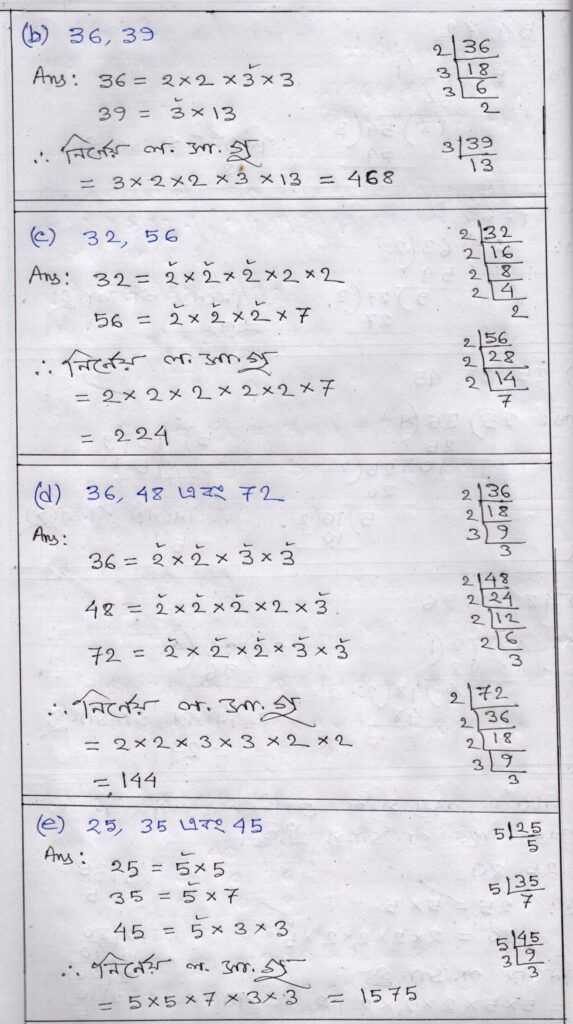 (b) 36, 39
Ans: 36 = 2×2×3×3
39 = 3×13
∴ নির্ণেয় ল. সা. গু
= 3×2×2×3×13 = 468
2 36
3 18
3 6
2
3 39
13
(c) 32, 56
Ans: 32 = 2×2×2×2×2
56 = 2×2×2×7
∴ নির্ণেয় ল. সা. গু
= 2×2×2×2×2×7
= 224
2 32
2 16
2 8
2 4
2
2 56
2 28
2 14
7
(d) 36, 48 এবং 72
Ans:
36 = 2×2×3×3
48 = 2×2×2×2×3
72 = 2×2×2×3×3
∴ নির্ণেয় ল. সা. গু
= 2×2×3×3×2×2
= 144
2 36
2 18
3 9
3
2 48
2 24
2 12
2 6
3
2 72
2 36
2 18
3 9
3
(e) 25, 35 এবং 45
Ans:
25 = 5×5
35 = 5×7
45 = 5×3×3
∴ নির্ণেয় ল. সা. গু
= 5×5×7×3×3 = 1575
5 25
5
5 35
7
5 45
3 9
3